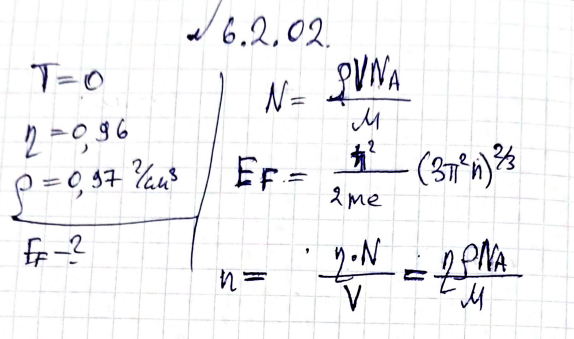 √ 6.2.02.
T = 0
η = 0,96
ρ = 0,97 г/см³
E_F - ?
N = ρVN_A / M
E_F = ħ² / 2me (3π²n)^2/3
n = η·N / V = ηρN_A / M